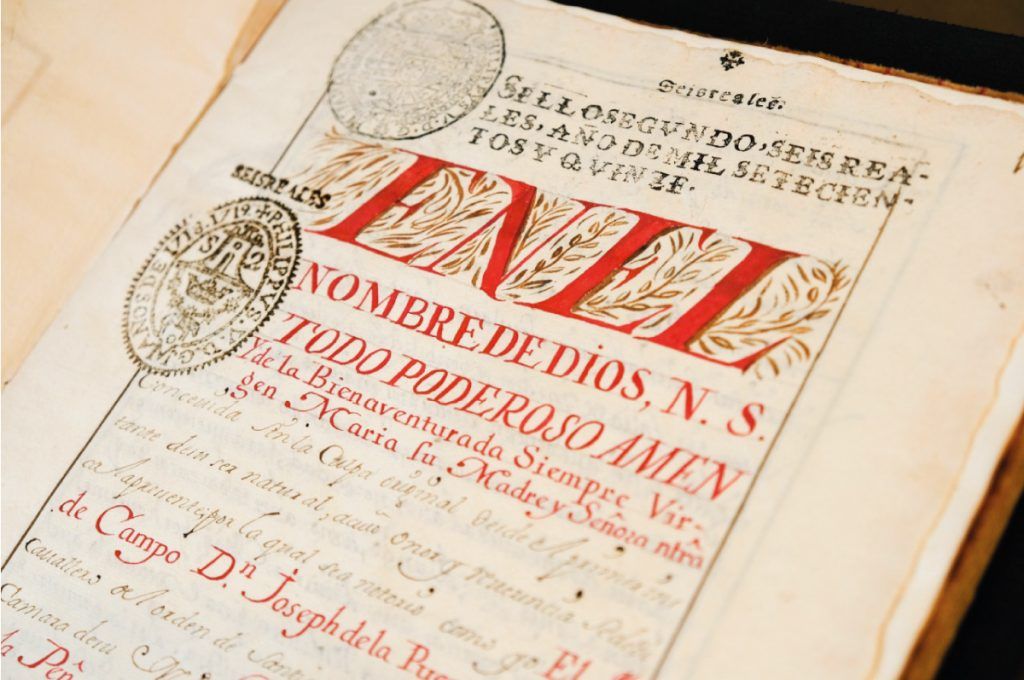 Seisreales.
SELLO SEGVNDO, SEIS REA-
LES, AÑO DE MIL SETECIEN-
TOS Y QVINZE.
SEISREALES
1719. ✠ PHILIPPVS. V. D. G.
ENEL
NOMBRE DE DIOS, N. S.
TODO PODEROSO AMEN
Y de la Bienaventurada Siempre Vir-
gen Maria su Madre y Señora ntrā
Conceuida sin la Culpa original desde el primer
tante de su sea natural,
por la qual sea notorio como yo El
de Campo Dn Joseph de la Pue
Cauallero del orden de San
Camara de su
la Peñ